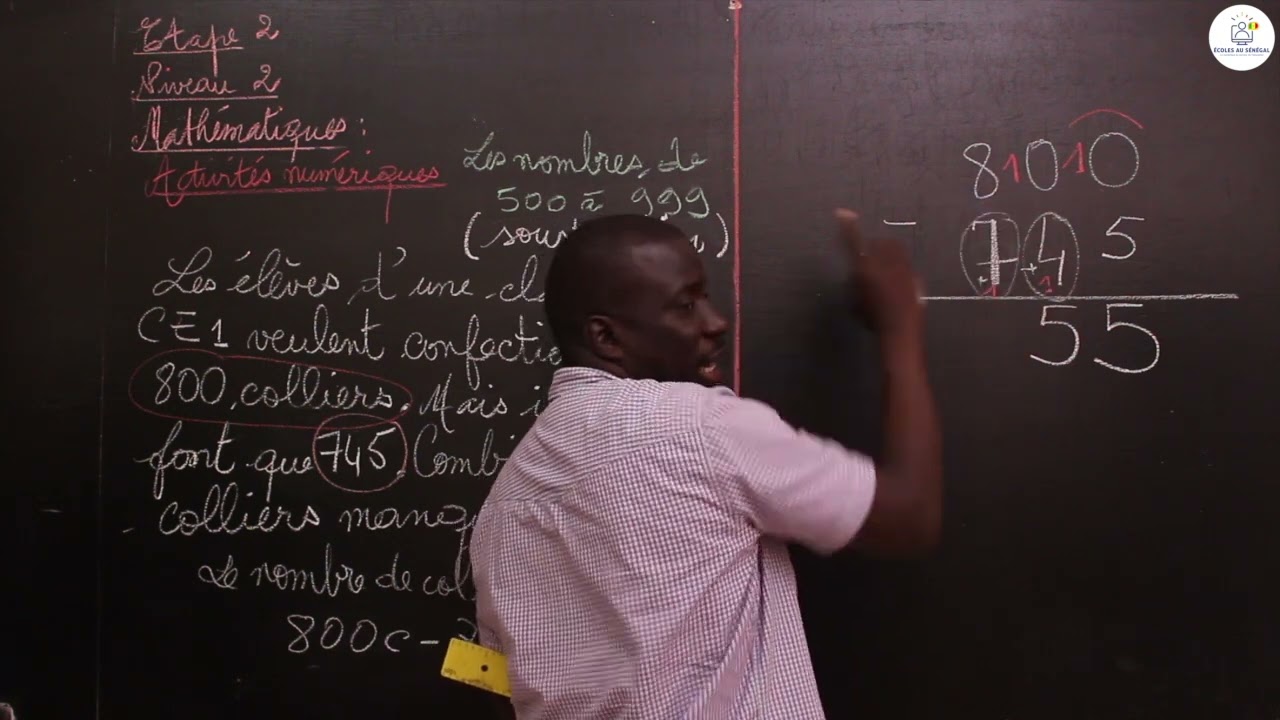 Etape 2
Niveau 2
Mathématiques :
Activités numériques
Les nombres de
500 à 999
(sous
Les élèves d'une cl
CE1 veulent confectio
800 colliers. Mais i
font que 745. Combi
colliers manq
Le nombre de col
800c -
8 1 0 1 0
- 7 4 5
+1 +1
5 5
ÉCOLES AU SÉNÉGAL